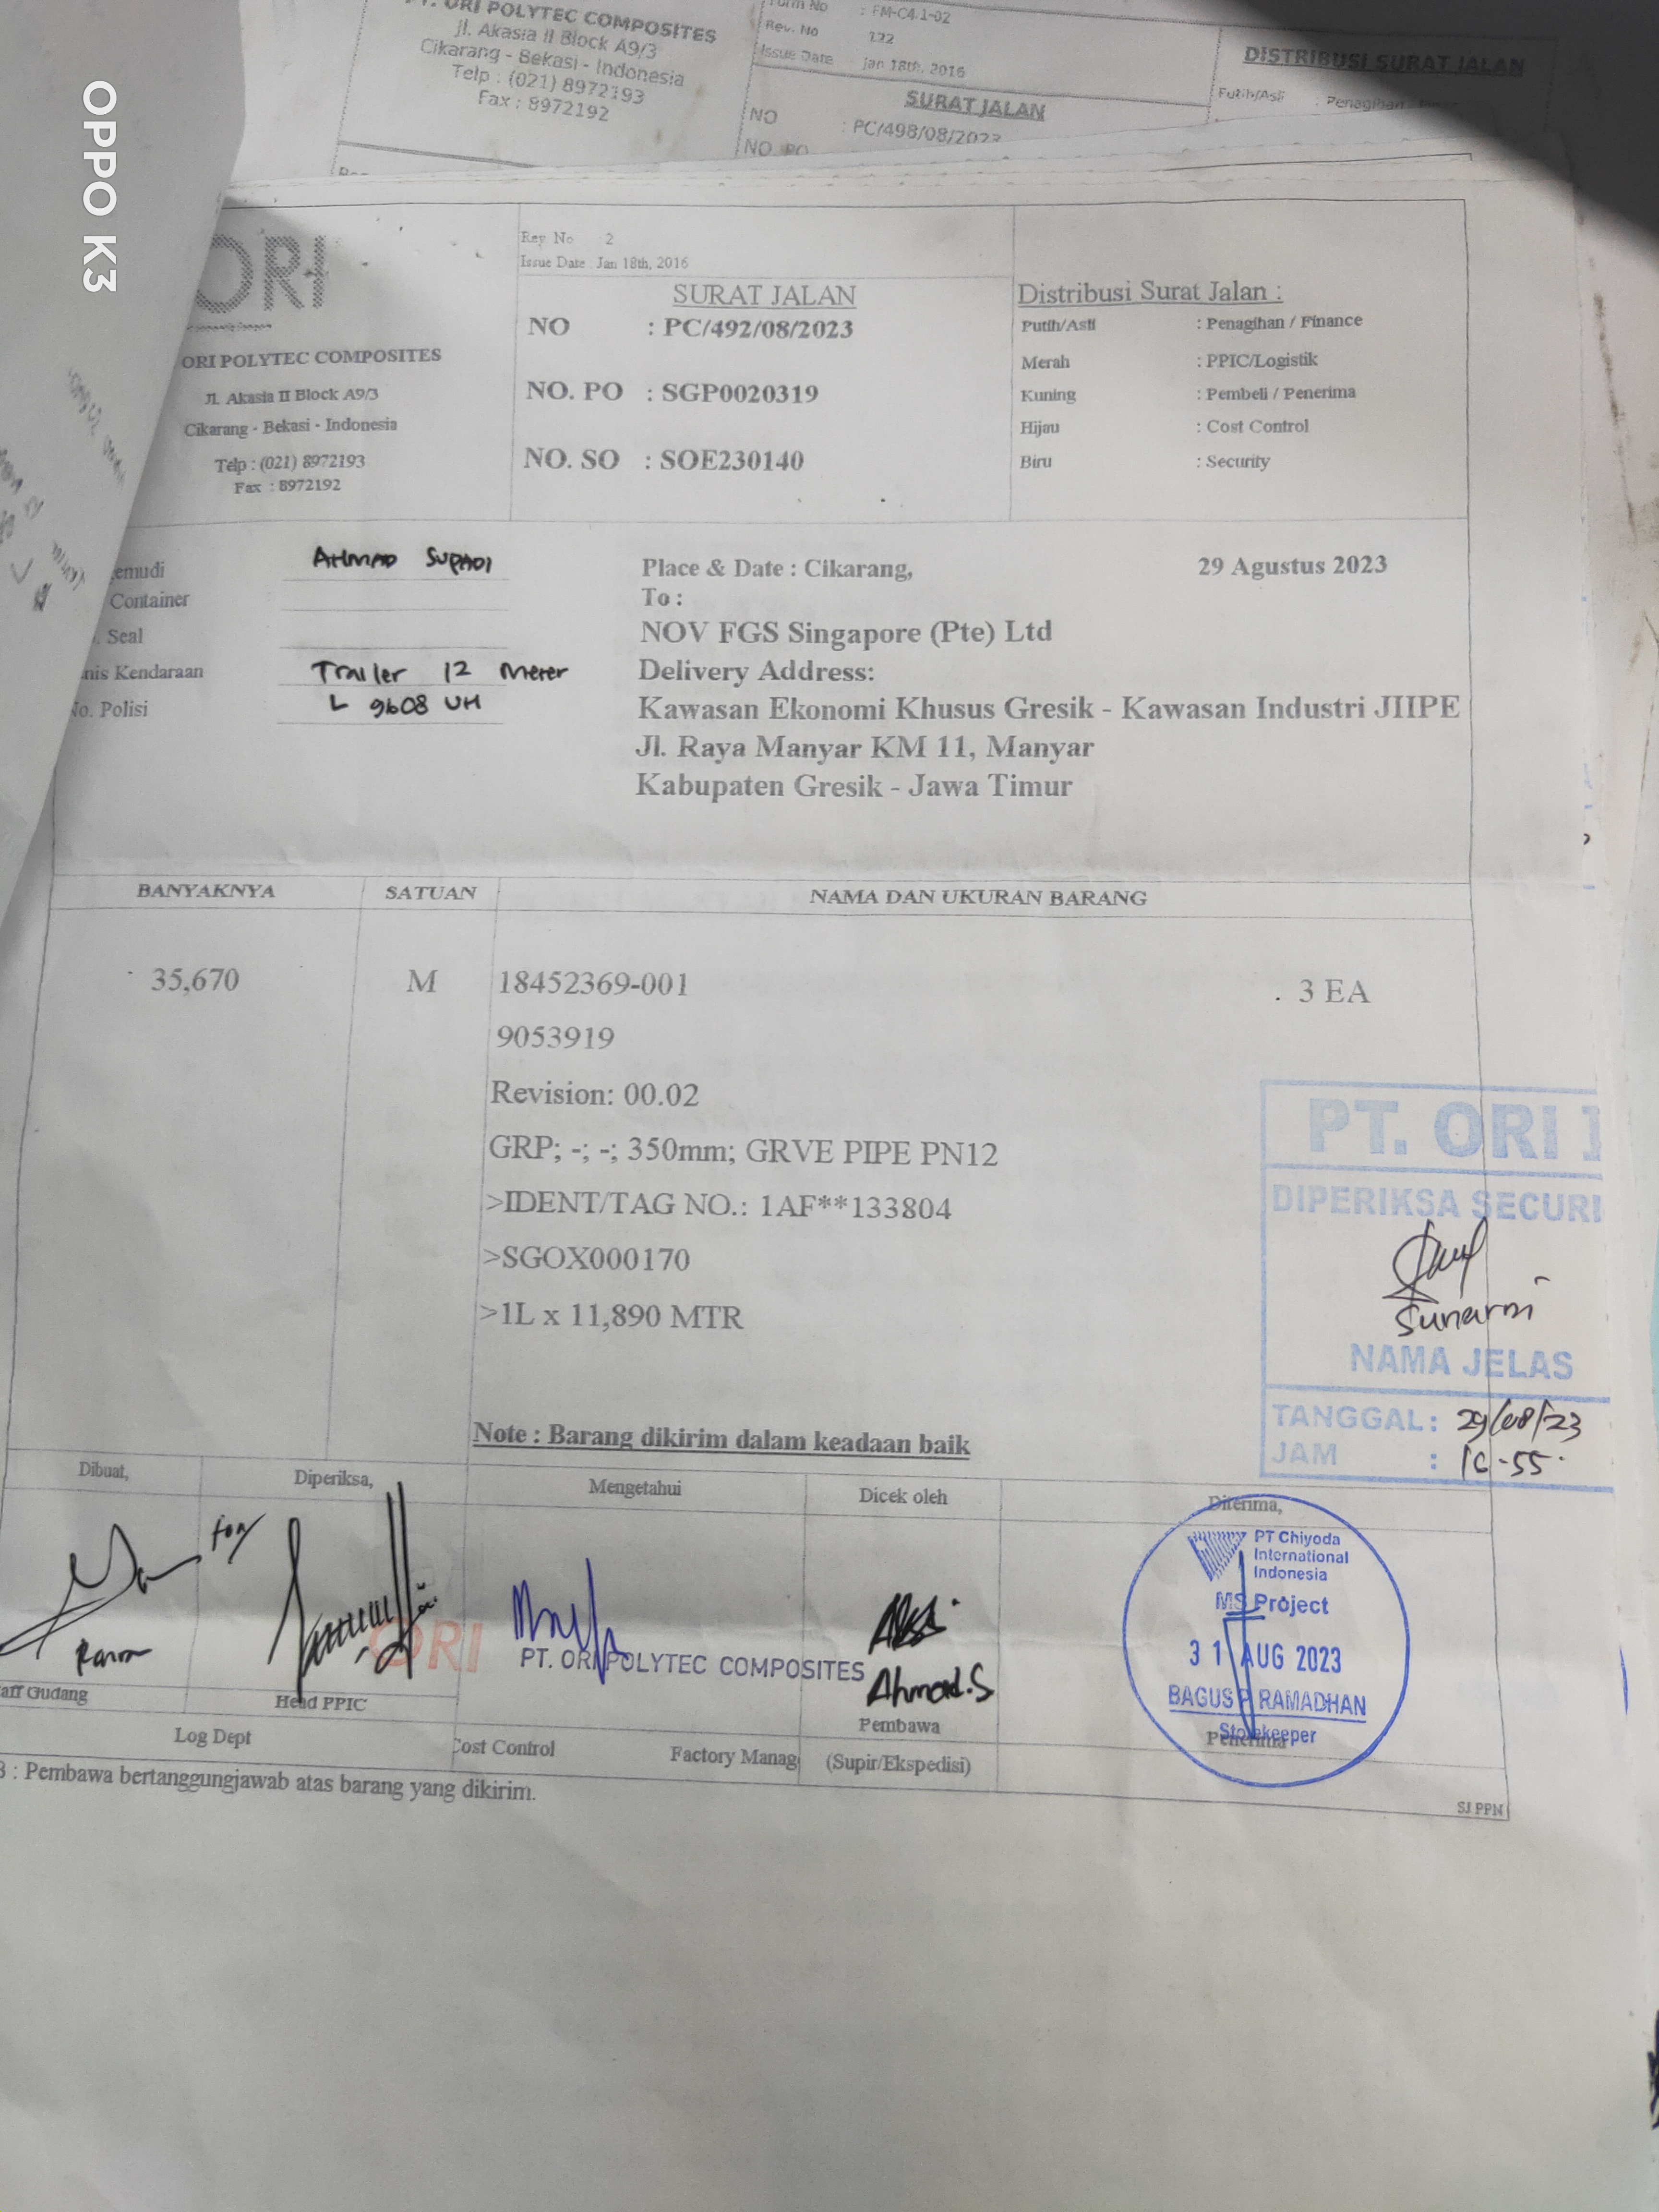 OPPO K3
ORI POLYTEC COMPOSITES
Jl. Akasia II Block A9/3
Cikarang - Bekasi - Indonesia
Telp : (021) 8972193
Fax : 8972192
Form No : FM-C4.1-02
Rev. No
Issue Date Jan 18th, 2016
SURAT JALAN
NO : PC/498/08/2023
NO. PO
DISTRIBUSI SURAT JALAN
Putih/Asli : Penagihan
ORI
ORI POLYTEC COMPOSITES
Jl. Akasia II Block A9/3
Cikarang - Bekasi - Indonesia
Telp : (021) 8972193
Fax : 8972192
Rev No 2
Issue Date : Jan 18th, 2016
SURAT JALAN
NO : PC/492/08/2023
NO. PO : SGP0020319
NO. SO : SOE230140
Distribusi Surat Jalan :
Putih/Asli : Penagihan / Finance
Merah : PPIC/Logistik
Kuning : Pembeli / Penerima
Hijau : Cost Control
Biru : Security
emudi AHMAD SUPADI
Container
. Seal
nis Kendaraan Trailer 12 Meter
No. Polisi L 9608 UH
Place & Date : Cikarang, 29 Agustus 2023
To :
NOV FGS Singapore (Pte) Ltd
Delivery Address:
Kawasan Ekonomi Khusus Gresik - Kawasan Industri JIIPE
Jl. Raya Manyar KM 11, Manyar
Kabupaten Gresik - Jawa Timur
BANYAKNYA SATUAN NAMA DAN UKURAN BARANG
35,670 M 18452369-001 3 EA
9053919
Revision: 00.02
GRP; -; -; 350mm; GRVE PIPE PN12
>IDENT/TAG NO.: 1AF**133804
>SGOX000170
>1L x 11,890 MTR
Note : Barang dikirim dalam keadaan baik
PT. ORI
DIPERIKSA SECURI
Sunarni
NAMA JELAS
TANGGAL : 29/08/23
JAM : 16-55
Dibuat, Diperiksa, Mengetahui Dicek oleh Diterima,
ORI
PT. ORI POLYTEC COMPOSITES
Ahmad.S
PT Chiyoda
International
Indonesia
MS Project
31 AUG 2023
BAGUS P RAMADHAN
Storekeeper
aff Gudang Head PPIC
Log Dept
Cost Control Factory Manag
Pembawa
(Supir/Ekspedisi)
Penerima
B : Pembawa bertanggungjawab atas barang yang dikirim.
SJ PPN